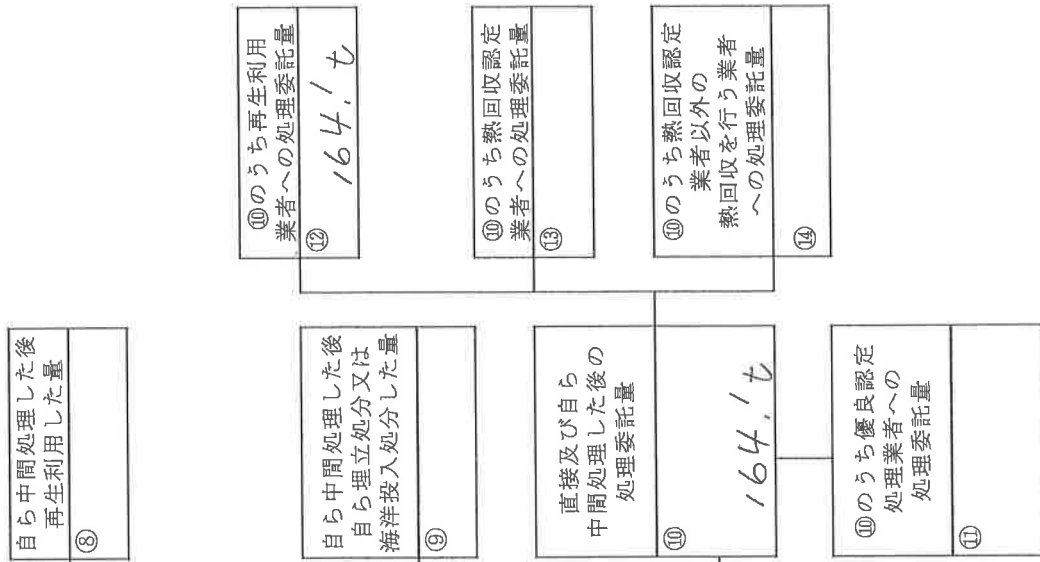 自ら中間処理した後
再生利用した量
⑧
自ら中間処理した後
自ら埋立処分又は
海洋投入処分した量
⑨
直接及び自ら
中間処理した後の
処理委託量
⑩
164.1t
⑩のうち優良認定
処理業者への
処理委託量
⑪
⑩のうち再生利用
業者への処理委託量
⑫
164.1t
⑩のうち熱回収認定
業者への処理委託量
⑬
⑩のうち熱回収認定
業者以外の
熱回収を行う業者
への処理委託量
⑭